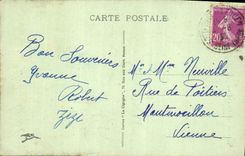 CARTE POSTALE
Bon Souvenirs
Yvonne
Robert
Zizi
Mr & Mme Neuville
Rue de Poitiers
Montmorillon
Vienne
20